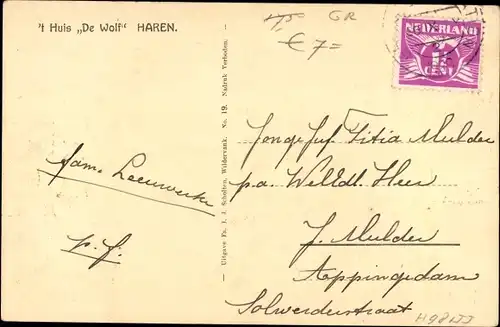 't Huis „De Wolf" HAREN.
GR
€ 7=
NEDERLAND
1½
CENT
Uitgave Fh. J. J. Scholten, Wildervank. No. 19. Nadruk Verboden.
fam. Leeuwerke
p. f.
Jongejuf Titia Mulder
p/a. WelEdl. Heer
J. Mulder
Appingedam
Solwerderstraat